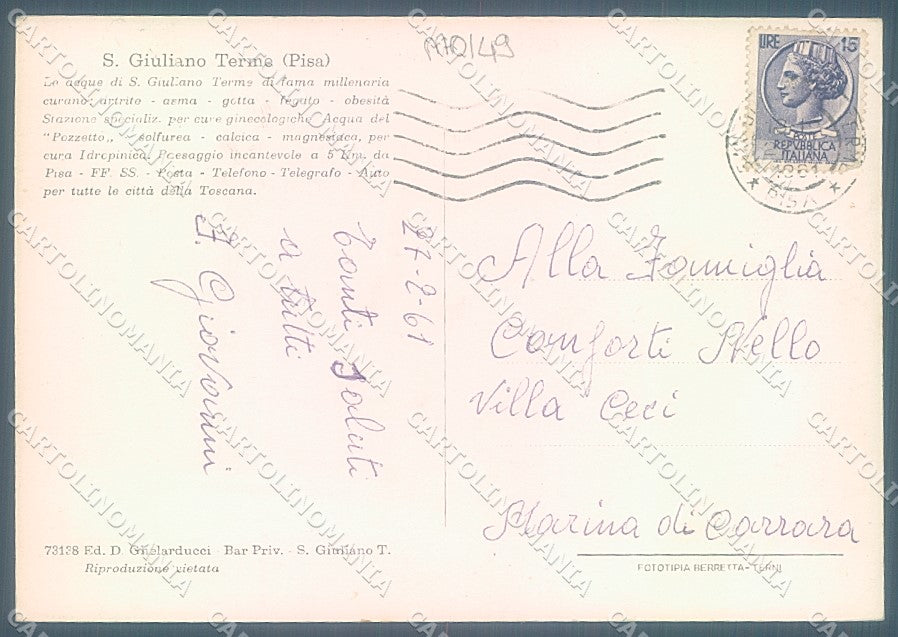 S. Giuliano Terme (Pisa)
Le acque di S. Giuliano Terme di fama millenaria
curano: artrite - asma - gotta - fegato - obesità
Stazione specializ. per cure ginecologiche Acqua del
"Pozzetto„ solfurea - calcica - magnesiaca, per
cura Idropinica. Paesaggio incantevole a 5 Km. da
Pisa - FF. SS. - Posta - Telefono - Telegrafo - Auto
per tutte le città della Toscana.
MO/49
LIRE 15
POSTE
REPVBBLICA
ITALIANA
1961
27-2-61
Tanti saluti
a tutti
F. Giovanni
Alla Famiglia
Conforti Nello
Villa Ceci
Marina di Carrara
73138 Ed. D. Ghelarducci - Bar Priv. - S. Giuliano T.
Riproduzione vietata
FOTOTIPIA BERRETTA - TERNI
CARTOLINOMANIA